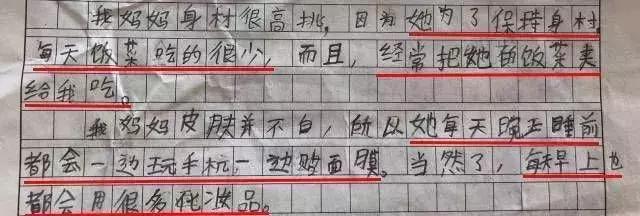 我妈妈身材很高挑，因为她为了保持身材，
每天饭菜吃的很少，而且，经常把她的饭菜夹
给我吃。
我妈妈皮肤并不白，所以她每天晚上睡前
都会一边玩手机，一边贴面膜。当然了，每天早上也
都会用很多化妆品。